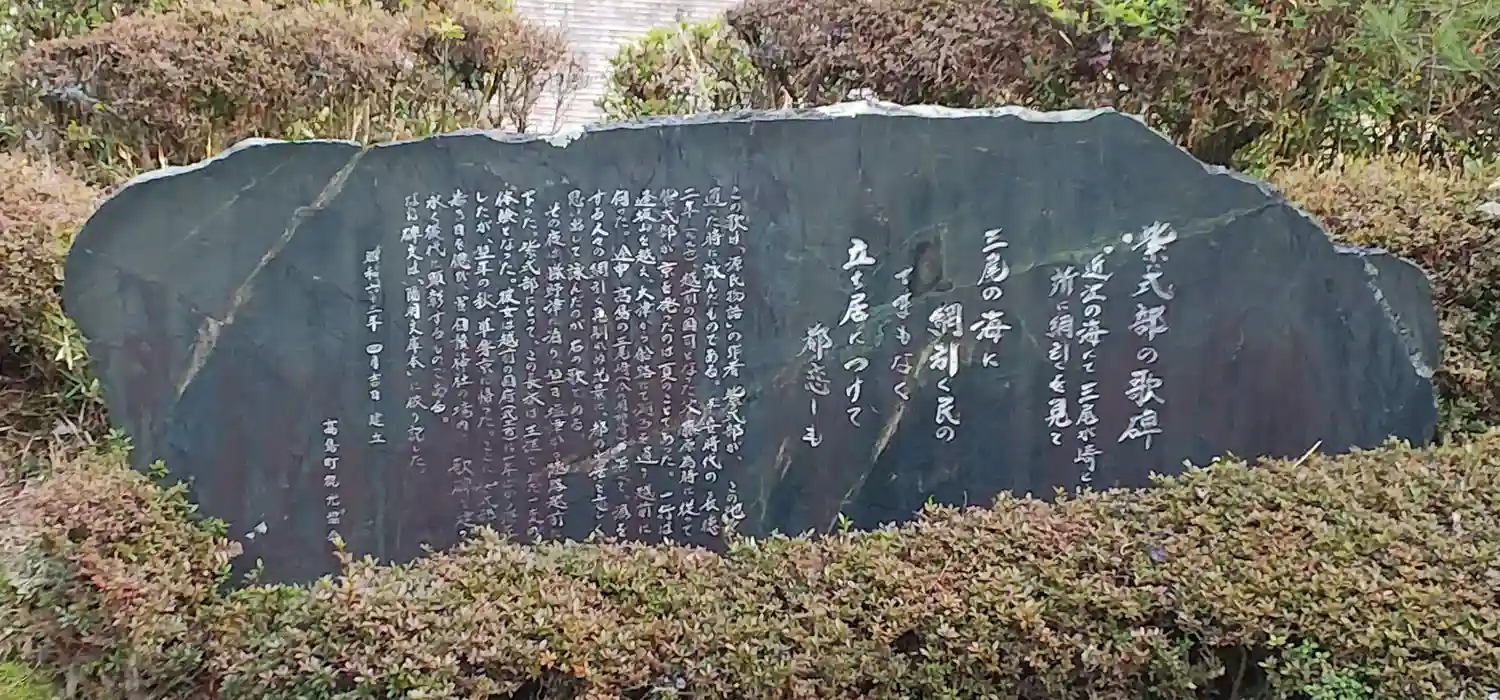 紫式部の歌碑
近江の海にて三尾が崎と
所に網引くを見て
三尾の海に
網引く民の
てまもなく
立ち居につけて
都恋しも
この歌は「源氏物語」の作者 紫式部が、この地
通った時に詠んだものである。平安時代の長徳
二年 越前の国司となった父藤原為時に従って
紫式部が京を発ったのは夏のことであった。一行は
逢坂山を越え、大津から船路にて
向った。途中、高島の三尾崎
する人々の網引く
思い出して詠んだのが右の歌である
その夜は勝野津に泊り、翌日塩津から
下った。紫式部にとって、この長旅は生涯
体験となった。彼女は越前の国府
したが翌年の秋、単身京に帰った。
若き日を偲び
永く後代に顕彰するものである。
なお碑文は「陽明文庫本」に依り記した。
昭和六十三年 四月吉日 建立
高島町観光